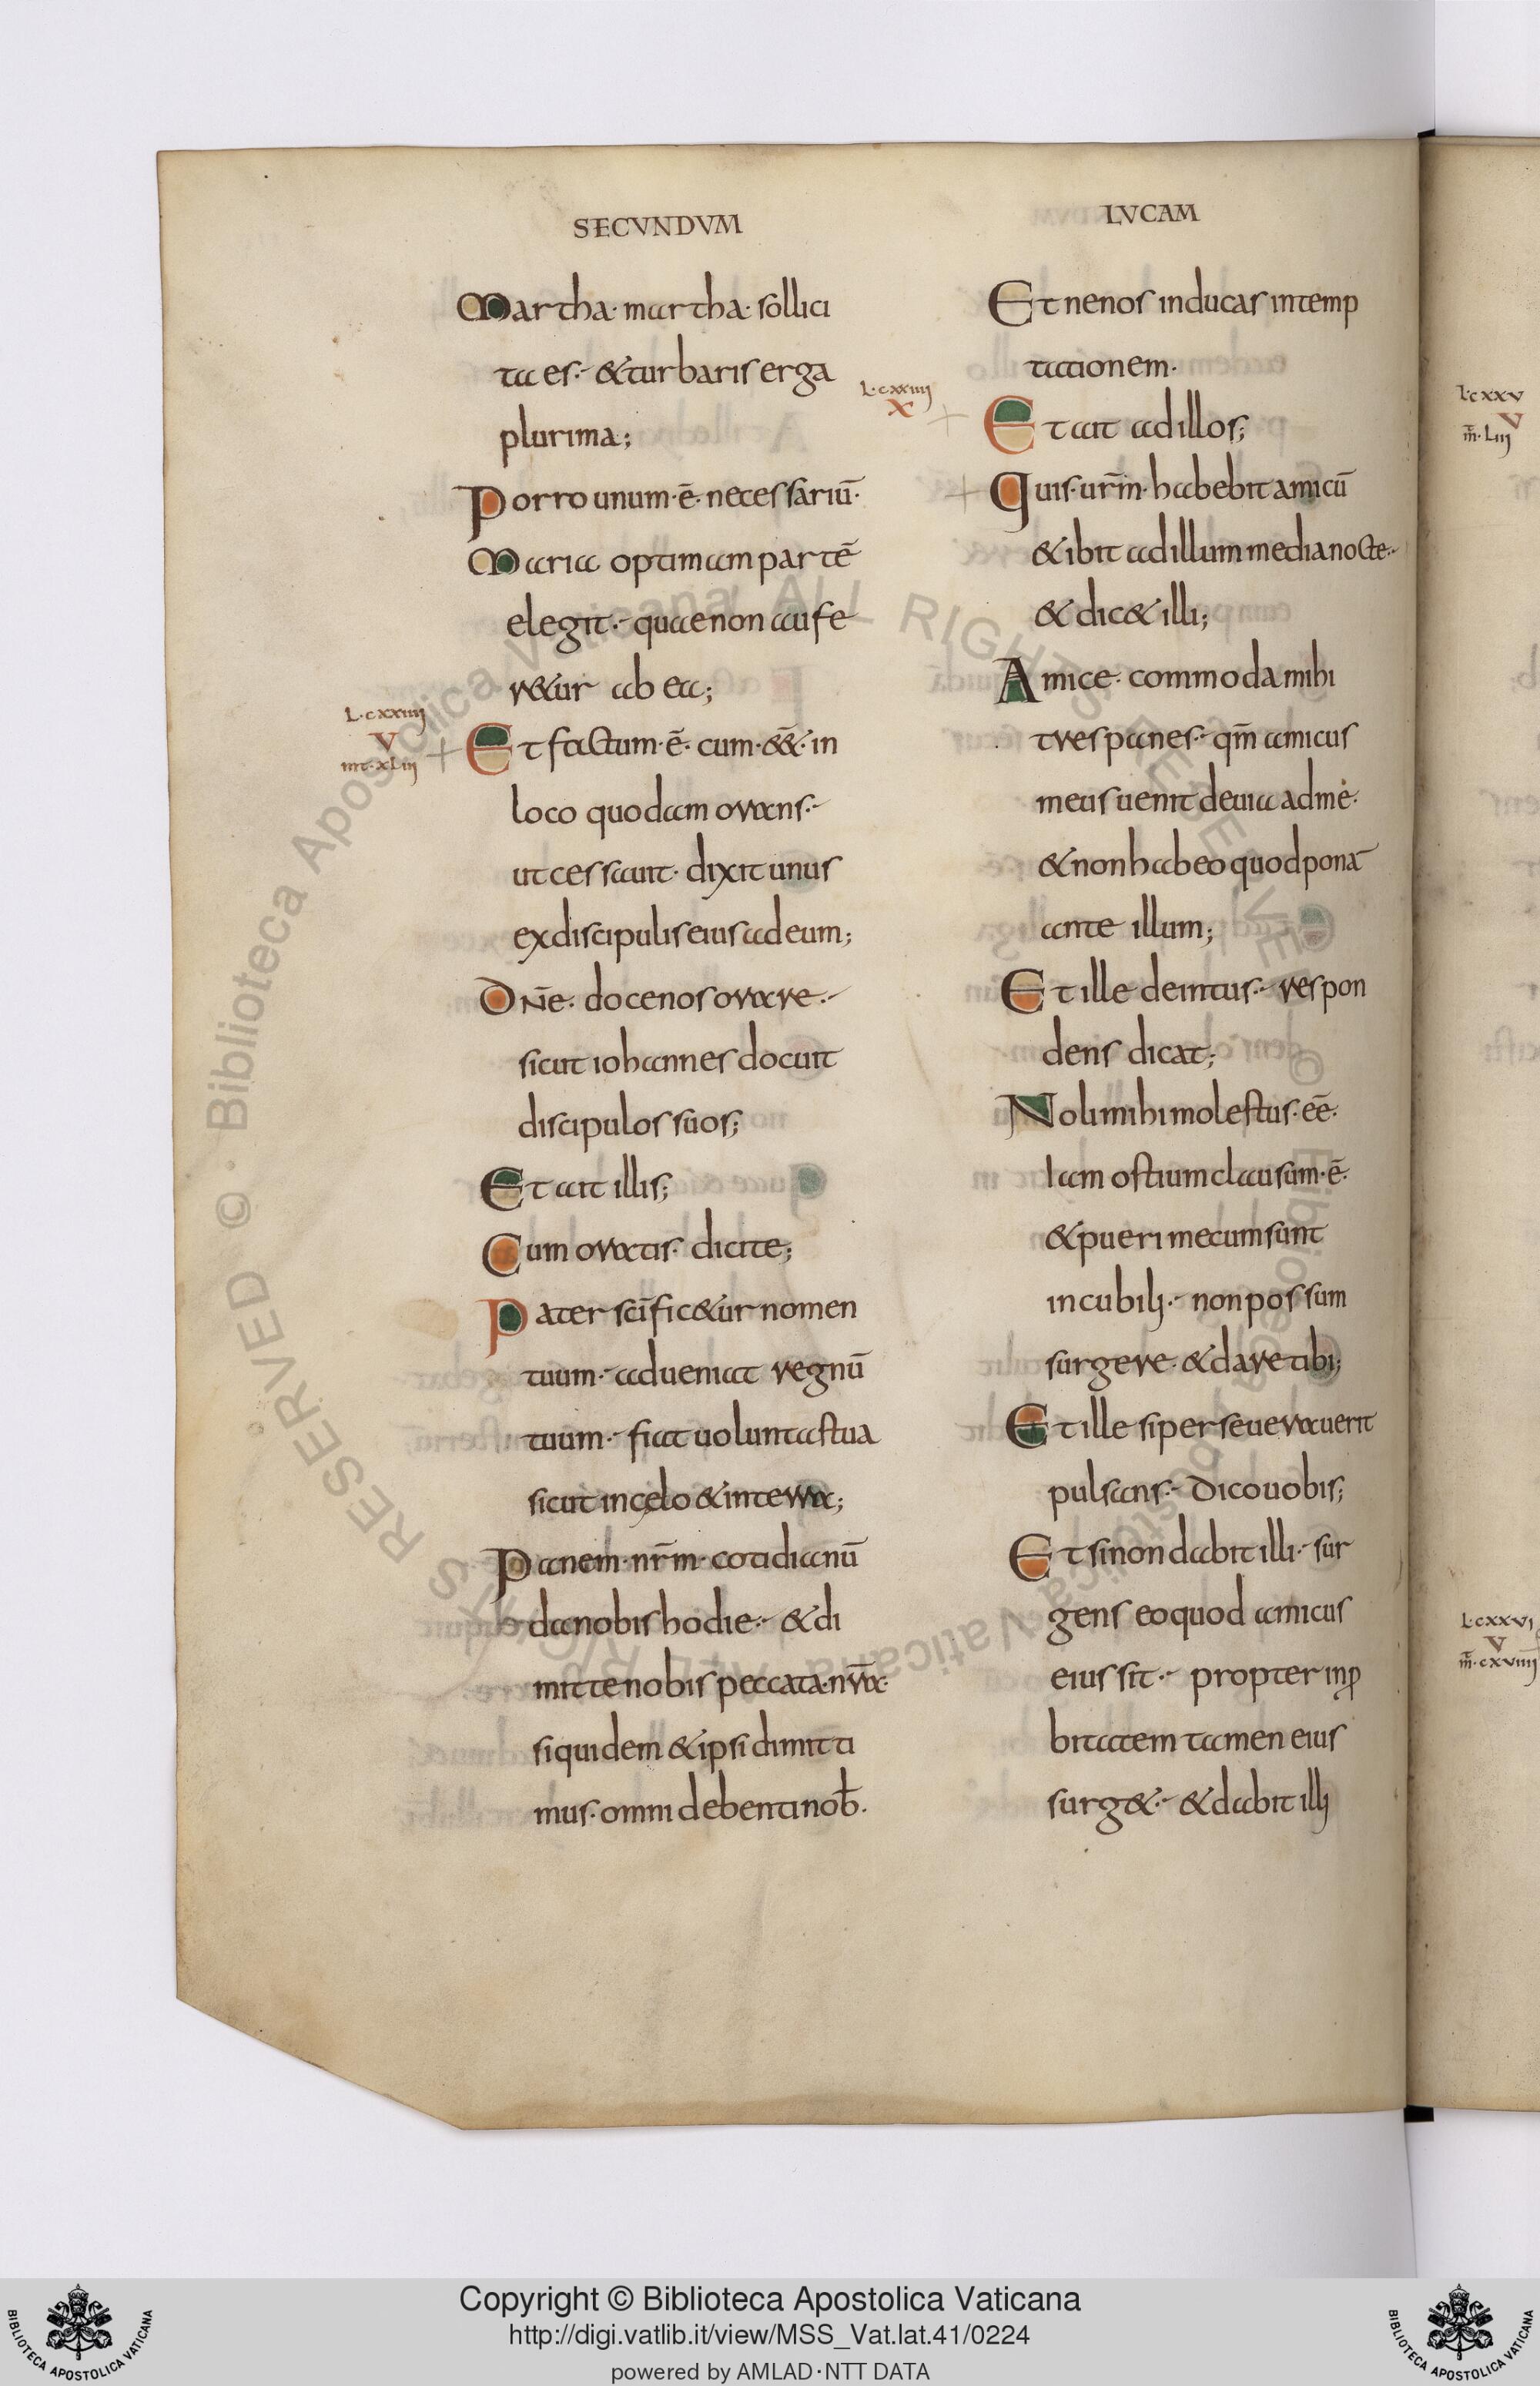 SECVNDVM
Martha· martha· sollici
ta es·- & turbaris erga
plurima;
Porro unum·ē· necessariū·
Maria optimam partē
elegit·- quae non aufe
r&ur ab ea;
L·cxxiiii
V
mt·xLiii
Et factum·ē· cum·eē&· in
loco quodam orans·-
ut cessauit· dixit unus
ex discipulis eius ad eum;
Dn̄e· doce nos orare·-
sicut iohannes docuit
discipulos suos;
Et ait illis;
Cum oratis· dicite;
Pater sc̄ific&ur nomen
tuum·- adueniat regnū
tuum·- fiat uoluntas tua
sicut in cęlo & in terra;
Panem·nr̄m·cotidianū
da nobis hodie·- & di
mitte nobis peccata·nr̄a·
siquidem & ipsi dimitti
mus· omni debenti nob̄·
LVCAM
Et ne nos inducas in temp
tationem·
L·cxxiiii
X
Et ait ad illos;
Quis·ur̄m· habebit amicū
& ibit ad illum media nocte·-
& dic& illi;
Amice· commoda mihi
tres panes·- qm̄ amicus
meus uenit de uia ad me·
& non habeo quod ponā
ante illum;
Et ille deintus·- respon
dens dicat;
Noli mihi molestus·eē·
Iam ostium clausum·ē·
& pueri mecum sunt
in cubili·- non possum
surgere· & dare tibi;
Et ille si perseuerauerit
pulsans·- Dico uobis;
Et si non dabit illi·- sur
gens eo quod amicus
eius sit·- propter inꝓ
bitatem tamen eius
surg&·- & dabit illi
L·cxxv
V
m̄·Liii
L·cxxvi
V
m̄·cxviiii
© Biblioteca Apostolica Vaticana ALL RIGHTS RESERVED
Copyright © Biblioteca Apostolica Vaticana
http://digi.vatlib.it/view/MSS_Vat.lat.41/0224
powered by AMLAD·NTT DATA
BIBLIOTECA APOSTOLICA VATICANA
BIBLIOTECA APOSTOLICA VATICANA